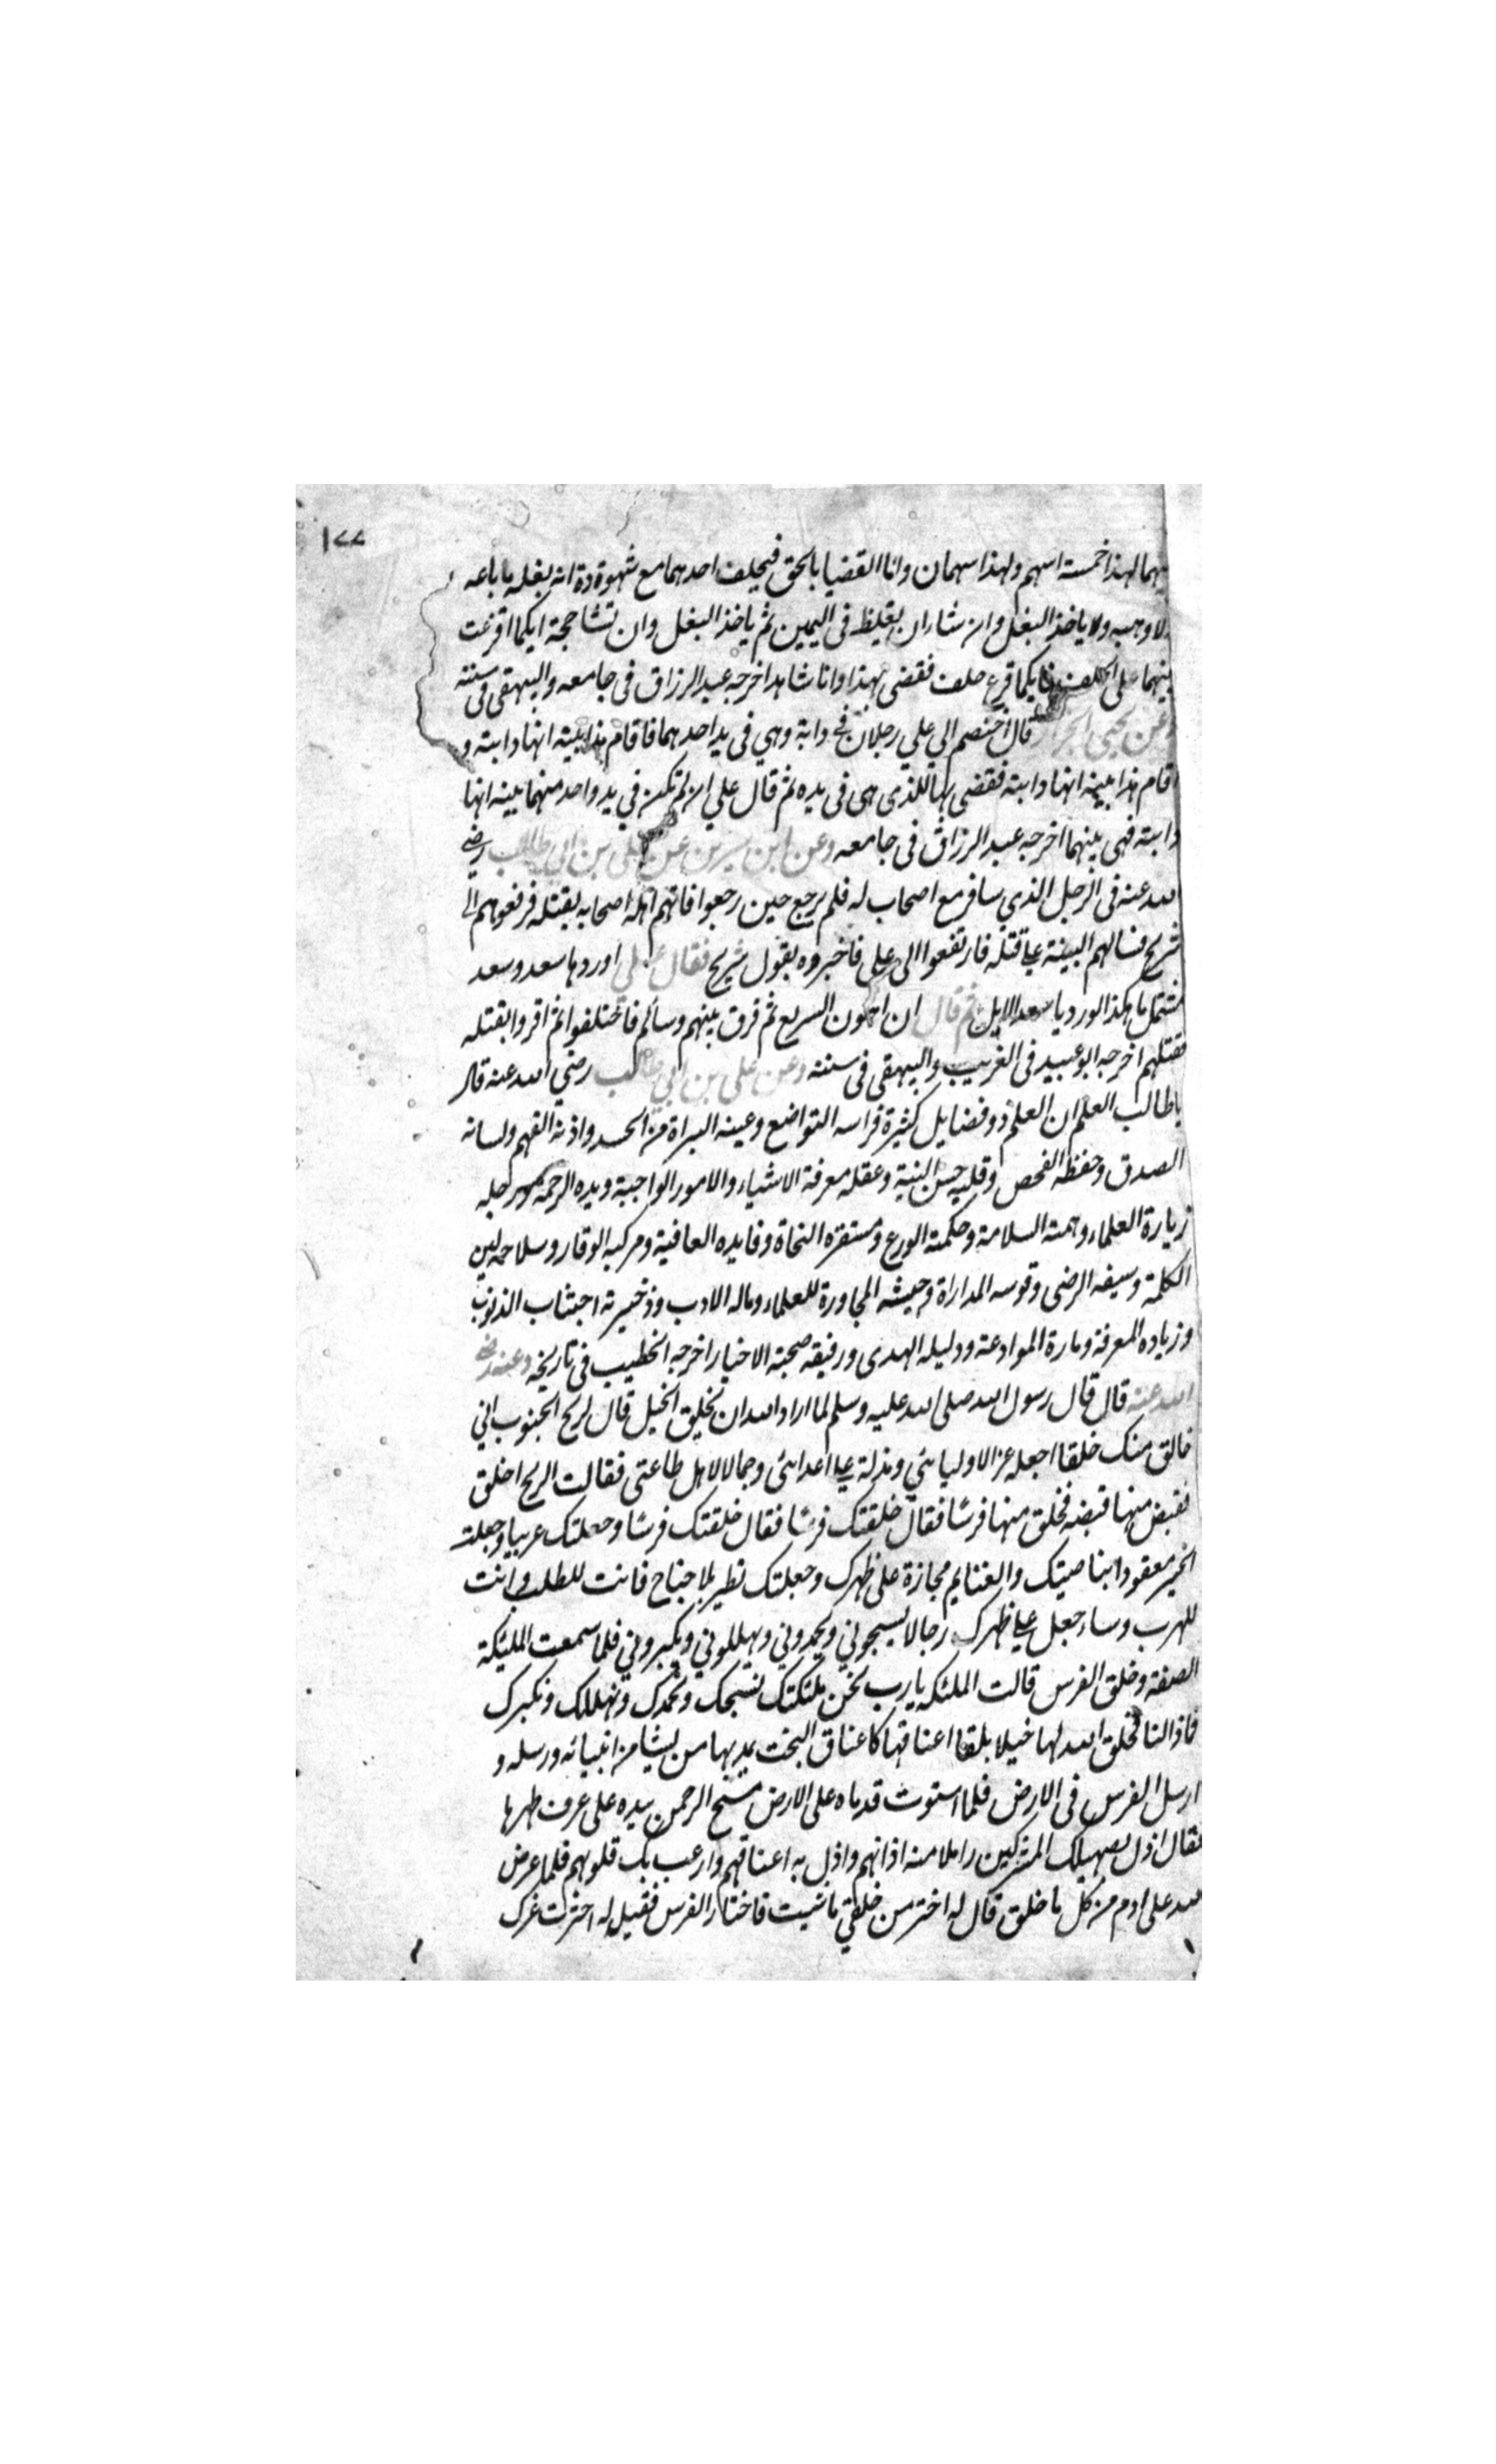 ١٧٧
بينهما لهذا خمسة اسهم ولهذا سهمان وانا القضيا بالحق فيحلف احدهما مع شهوده انه بغله ما باعه
ولا وهبه ولا ياخذ البغل وان شاا ان يغليظ في اليمين ثم ياخذ البغل وان تشاححتة ايكما اقرعت
بينهما على الحلف فايكما قرع حلف فقضى بهذا وانا شاهد اخرجه عبد الرزاق في جامعه والبيهقى في سننه
وعن يحيى الجزار قال اختصم الى علي رجلان في دابة وهي في يد احدهما فاقام هذا بينة انها دابته و
اقام هذا بينة انها دابته فقضى بها للذى هى فى يده ثم قال علي ان لم تكن في يد واحد منهما بينه انها
دابته فهى بينهما اخرجه عبد الرزاق فى جامعه وعن ابن سيرين عن على بن ابي طالب رضي
الله عنه فى الرجل الذي سافر مع اصحاب له فلم يرجع حين رجعوا فاتهم اهله اصحابه بقتله فرفعوهم الى
شريح فسالهم البينة على قتله فارتفعوا الى على فاخبروه بقول شريح فقال على اوردها سعد وسعد
مشتمل ما هكذا تورد يا سعد الابل ثم قال ان اهون السريع ثم فرق بينهم وسألهم فاختلفوا ثم اقروا بقتله
فقتلهم اخرجه ابو عبيد فى الغريب والبيهقى فى سننه وعن على بن ابي طالب رضي الله عنه قال
يا طالب العلم ان العلم ذو فضايل كثيرة فراسه التواضع وعينه البراة من الحسد واذنه الفهم ولسانه
الصدق وحفظه الفحص وقلبه حسن النية وعقله معرفة الاشياء والامور الواجبة ويده الرحمة ورجله
زيارة العلماء وهمته السلامة وحكمته الورع ومستقره النجاة وفايده العافية ومركبه الوقار وسلاحه لين
الكلمة وسيفه الرضى وقوسه المداراة وجيشه المجاورة للعلماء وماله الادب وذخيرته اجتناب الذنوب
وزياده المعرفة وماءه الموادعة ودليله الهدى ورفيقه صحبة الاخيار اخرجه الخطيب فى تاريخه وعنه رضي
الله عنه قال قال رسول الله صلى الله عليه وسلم لما اراد الله ان يخلق الخيل قال لريح الجنوب اني
خالق منك خلقا اجعله عزا لاوليائي ومذلة على اعدائى وجمالا لاهل طاعتى فقالت الريح اخلق
فقبض منها قبضه فخلق منها فرسًا فقال خلقتك فرسًا فقال خلقتك فرسًا وجعلتك عربيا وجعلت
الخير معقودا بناصيتك والغنايم مجازة على ظهرك وجعلتك تطير بلا جناح فانت للطلب وانت
للهرب وساجعل على ظهرك رجالا يسبحوني ويحمدوني ويهللوني ويكبروني فلما سمعت المليكة
الصفة وخلق الفرس قالت الملئكه يا رب نحن ملئكتك نسبحك ونحمدك ونهللك ونكبرك
فماذا لنا فخلق الله لها خيلا بلقا اعناقها كاعناق البخت يمد بها من يشا من انبيائه ورسله و
ارسل الفرس فى الارض فلما استوت قدماه على الارض مسح الرحمن بيده على عرف ظهرها
فقال اذل بصهيلك المشركين املا منه اذانهم واذل به اعناقهم وارعب بك قلوبهم فلما عرض
الله على ادم من كل ما خلق قال له اختر من خلقي ما شيت فاختار الفرس فقيل له اخترت عزك